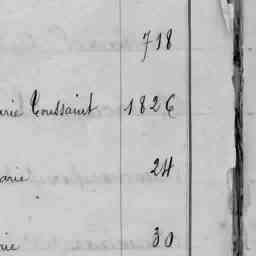 718
arie Toussaint 1826
arie 24
rie 30